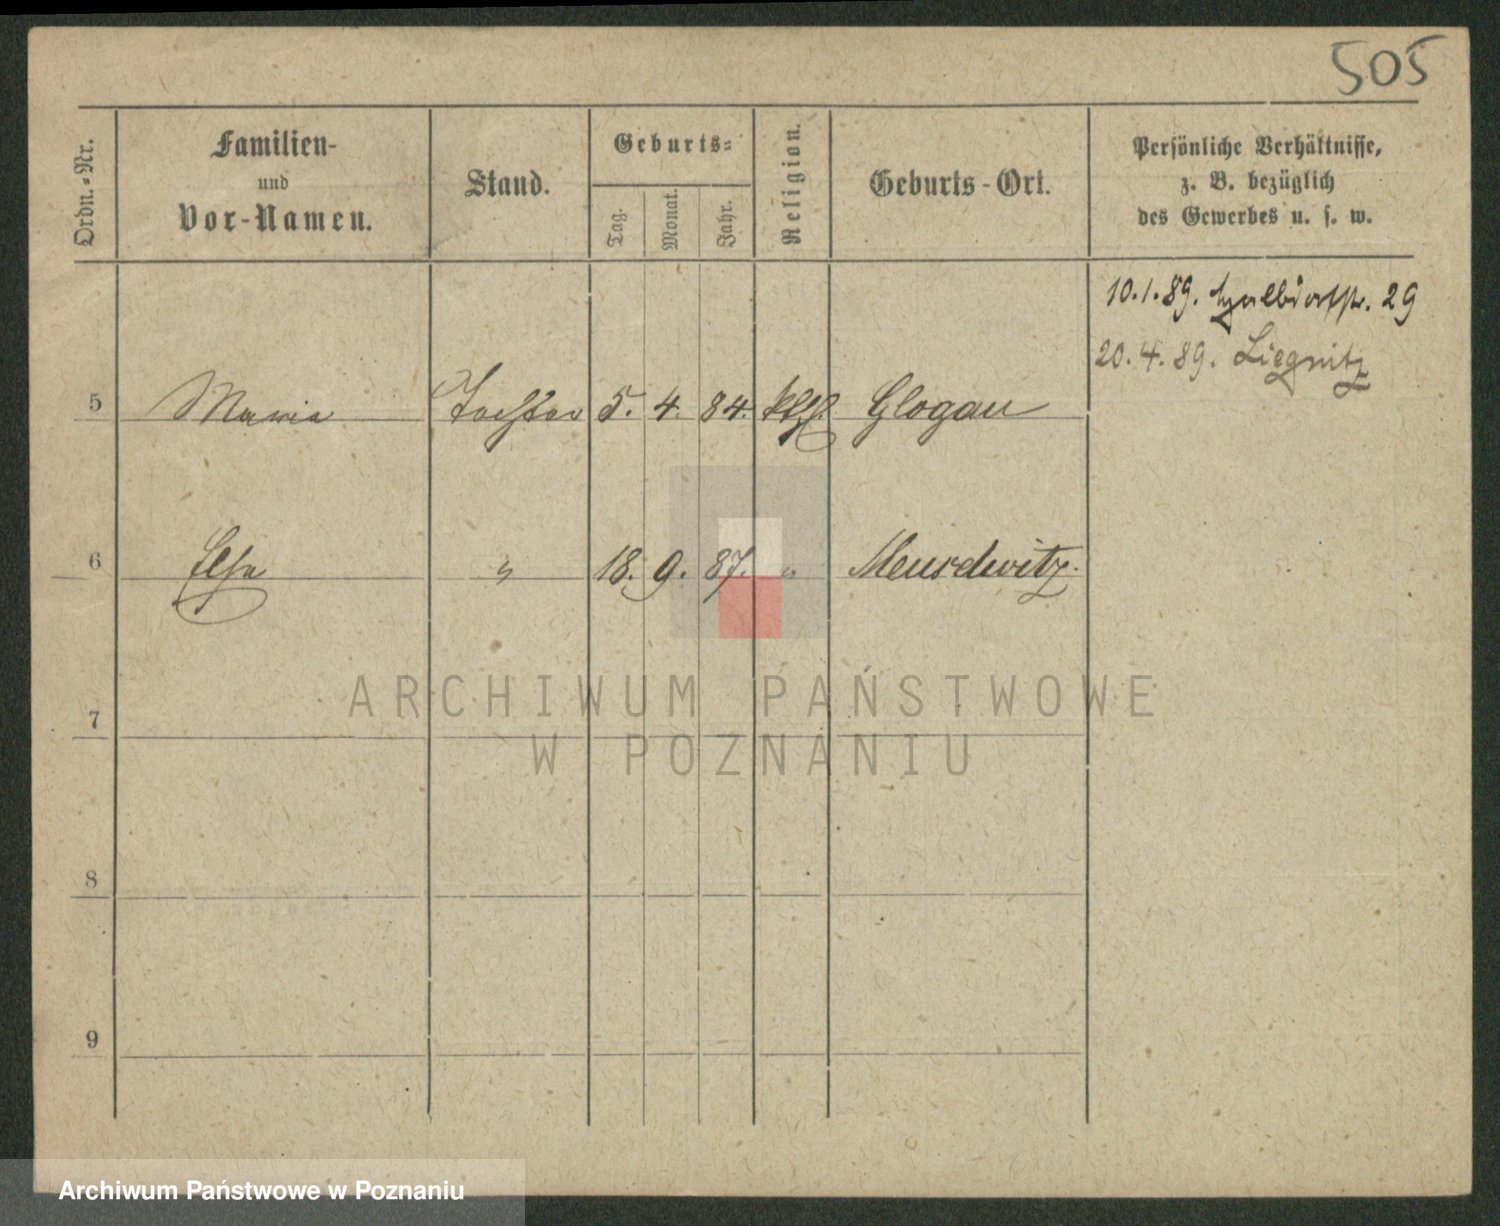 505
Ordn.-Nr.
Familien-
und
Vor-Namen.
Stand.
Geburts-
Tag.
Monat.
Jahr.
Religion.
Geburts-Ort.
Persönliche Verhältnisse,
z. B. bezüglich
des Gewerbes u. s. w.
10.1.89. Halbdorfstr. 29
20.4.89. Liegnitz
5 Maria Tochter 5. 4. 84. kth Glogau
6 Elsa " 18. 9. 87. "
7
8
9
ARCHIWUM PAŃSTWOWE
W POZNANIU
Archiwum Państwowe w Poznaniu